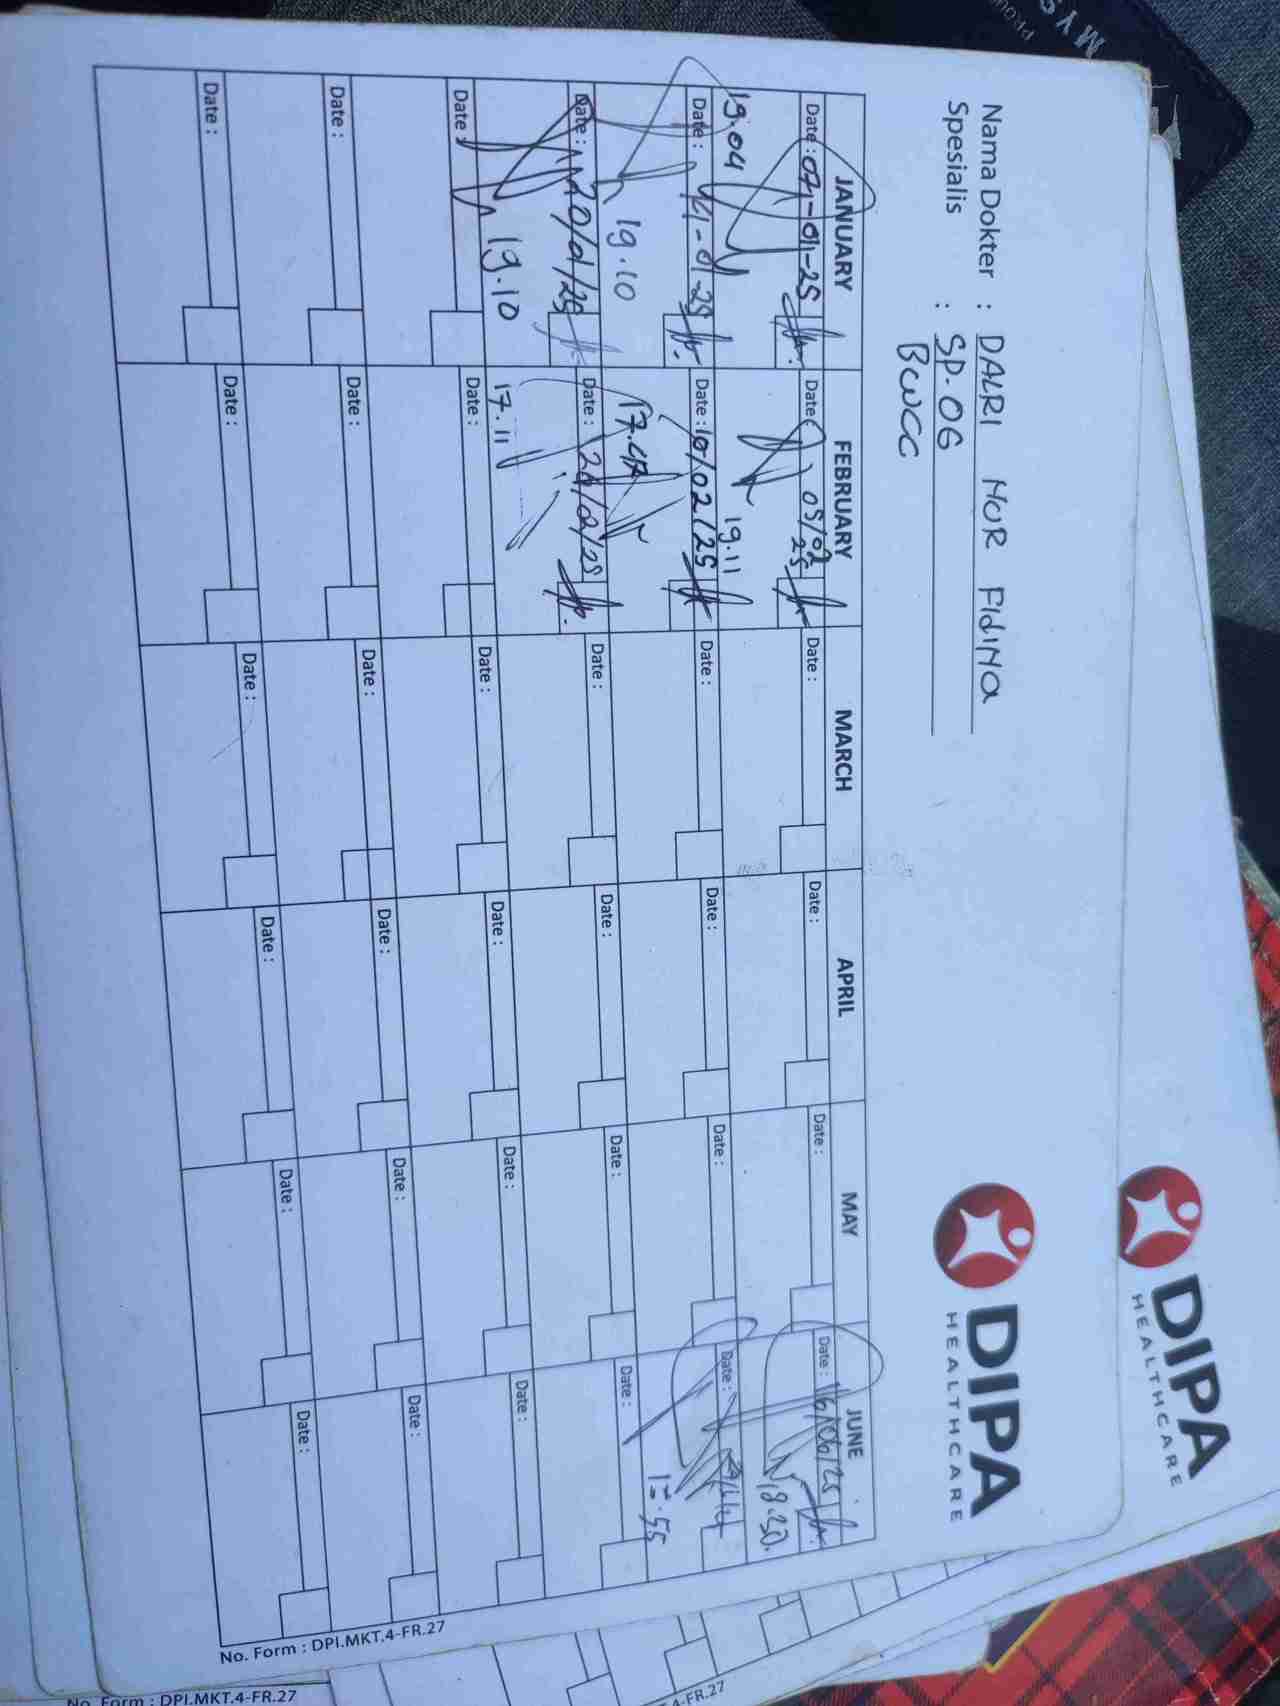 Nama Dokter : DALRI NUR FIDINA
Spesialis : SP.OG
BWCC
DIPA
HEALTHCARE
DIPA
HEALTHCARE
JANUARY FEBRUARY MARCH APRIL MAY JUNE
Date : 07-01-25 Date : 05/02 25 Date : Date : Date : Date : 16/06/25
19.04 19.11 18.30.
Date : 14-01-25 Date : 10/02/25 Date : Date : Date : Date :
19.10 17.47 17.55
Date : 20/01/25 Date : 24/02/25 Date : Date : Date : Date :
19.10 17.11
Date : Date : Date : Date : Date : Date :
Date : Date : Date : Date : Date : Date :
Date : Date : Date : Date : Date : Date :
No. Form : DPI.MKT.4-FR.27
No. Form : DPI.MKT.4-FR.27
4-FR.27
MYS